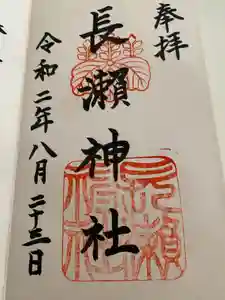 奉拝
長瀬神社
令和二年八月二十三日
長瀬神社